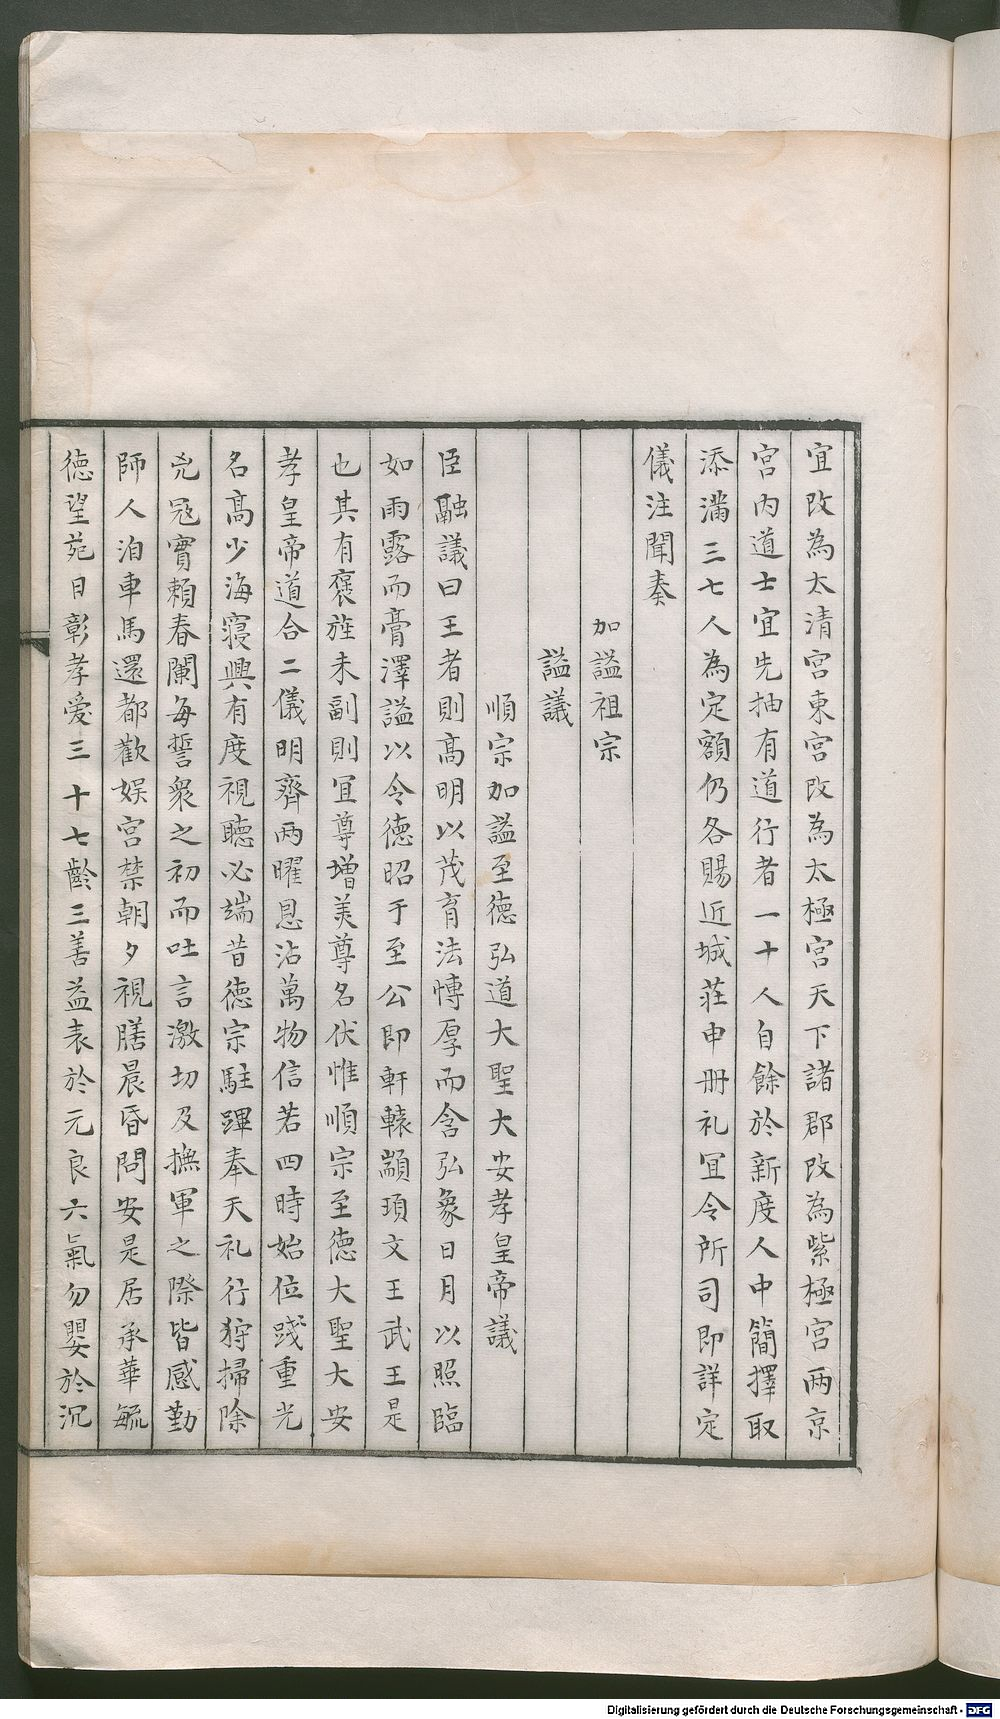 宜改為太清宮東宮改為太極宮天下諸郡改為紫極宮两京
宮内道士宜先抽有道行者一十人自餘於新度人中簡擇取
添滿三七人為定額仍各賜近城莊申册礼冝令所司即詳定
儀注聞奏
加謚祖宗
謚議
順宗加謚至德弘道大聖大安孝皇帝議
臣融議曰王者則高明以茂育法愽厚而含弘象日月以照臨
如雨露而膏澤謚以令德昭于至公即軒轅顓頊文王武王是
也其有褒旌未副則冝尊增美尊名伏惟順宗至德大聖大安
孝皇帝道合二儀明齊两曜恩沾萬物信若四時始位踐重光
名高少海寢興有度視聽必端昔德宗駐蹕奉天礼行狩掃除
兇冦實賴春闈每誓衆之初而吐言激切及撫軍之際皆感勤
師人洎車馬還都歡娱宮禁朝夕視膳晨昏問安是居承華毓
德望苑日彰孝愛三十七齡三善益表於元良六氣勿嬰於沉
Digitalisierung gefördert durch die Deutsche Forschungsgemeinschaft - DFG